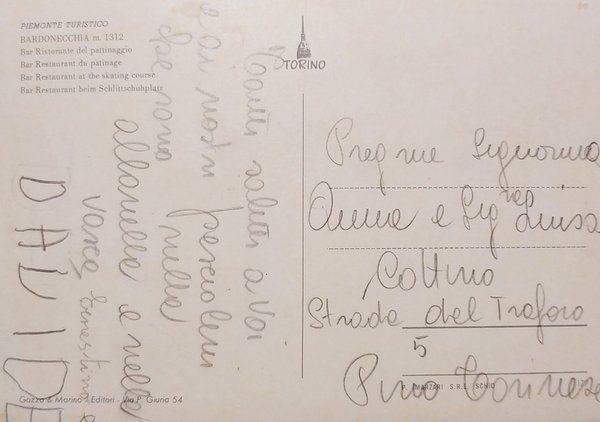 PIEMONTE TURISTICO
BARDONECCHIA m. 1312
Bar Ristorante del pattinaggio
Bar Restaurant du patinage
Bar Restaurant at the skating course
Bar Restaurant beim Schlittschuhplatz
TORINO
Tanti saluti a voi
e ai nostri pesciolini
che sono nella
albanella e nella
vasca
DALIDE
Preg me Signorina
Anna e Sig Luisa
Cottino
Strada del Traforo
5
Pino Torinese
P. MARZARI S.R.L. SCHIO
Gazzo & Marino - Editori - Via P. Giuria 54